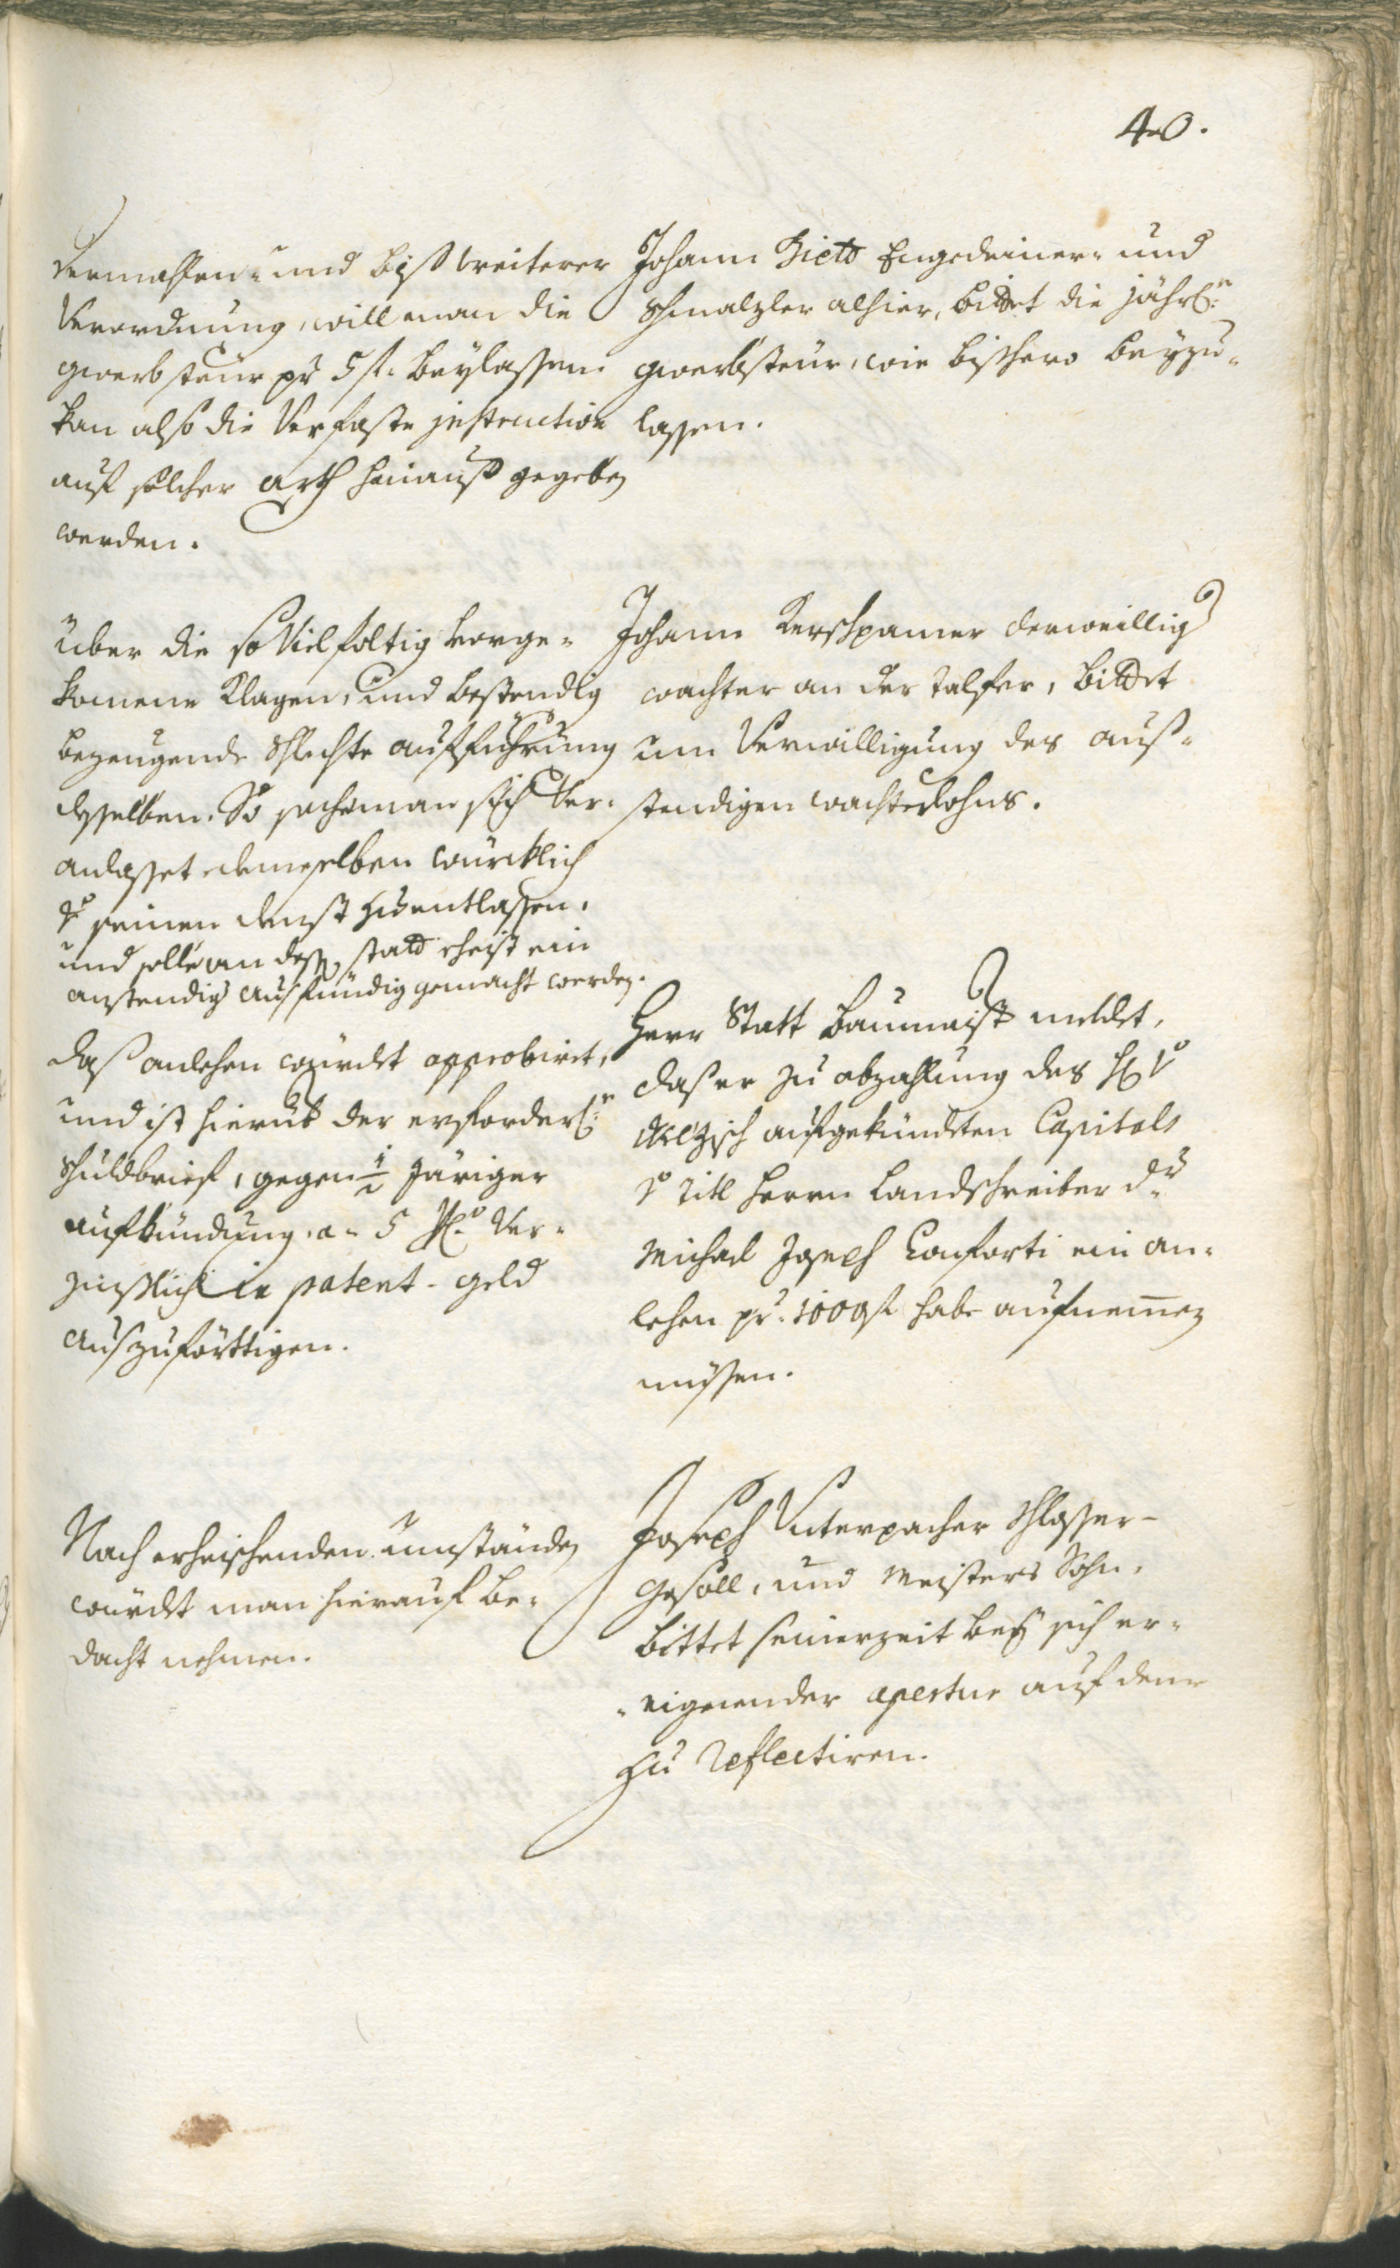 40.
Dermahlen- und biß weiterer
Verordnung, will man die
gwerbsteur pr 5 f. beylassen
kan also die Verfaste instruction
auf solcher arth hinauß gegeben
werden.
Johann Ziets Engedeiner- und
Schmalzler alhier, bittet die jährl:n
gwerbsteur, wie bishero beyzu-
lassen.
Über die so Vielfoltig vorge-
komene Klagen, und bestendig
bezeugende schlechte aufführung
desselben. So sechet man sich Ver-
anlasset demselben würcklich
seinen denst zu entlassen.
und solle an dess statt ehist ein
anstendiger ausfündig gemacht werden.
Johann Kerschpamer derweillig
wachter an der Talfer, bittet
um Verwilligung des auß-
stendigen wachterlohns.
Daß anlehen würdet approbiret,
und ist hierüb der erforderl:e
schuldbrief, gegen 1/2 Järiger
aufkündung a 5 pc:to Ver-
zinßlich in patent-geld
auszuförttigen.
Herr Statt Baumaister meldet,
daß er zu abzahlung des
aufgekündeten Capitals
Titl Herrn Landschreiber Dr
Michael Joseph Conforti ein an-
lehen pr. 1000 f habe aufnemen
müssen.
Nach erheischenden umständen
würdet man hierauf be-
dacht nehmen.
Joseph Unterpacher Schlosser-
gesöll, und Meisters Sohn,
bittet seinerzeit bey sich er-
-eignender apertur auf dene
zu reflectiren.